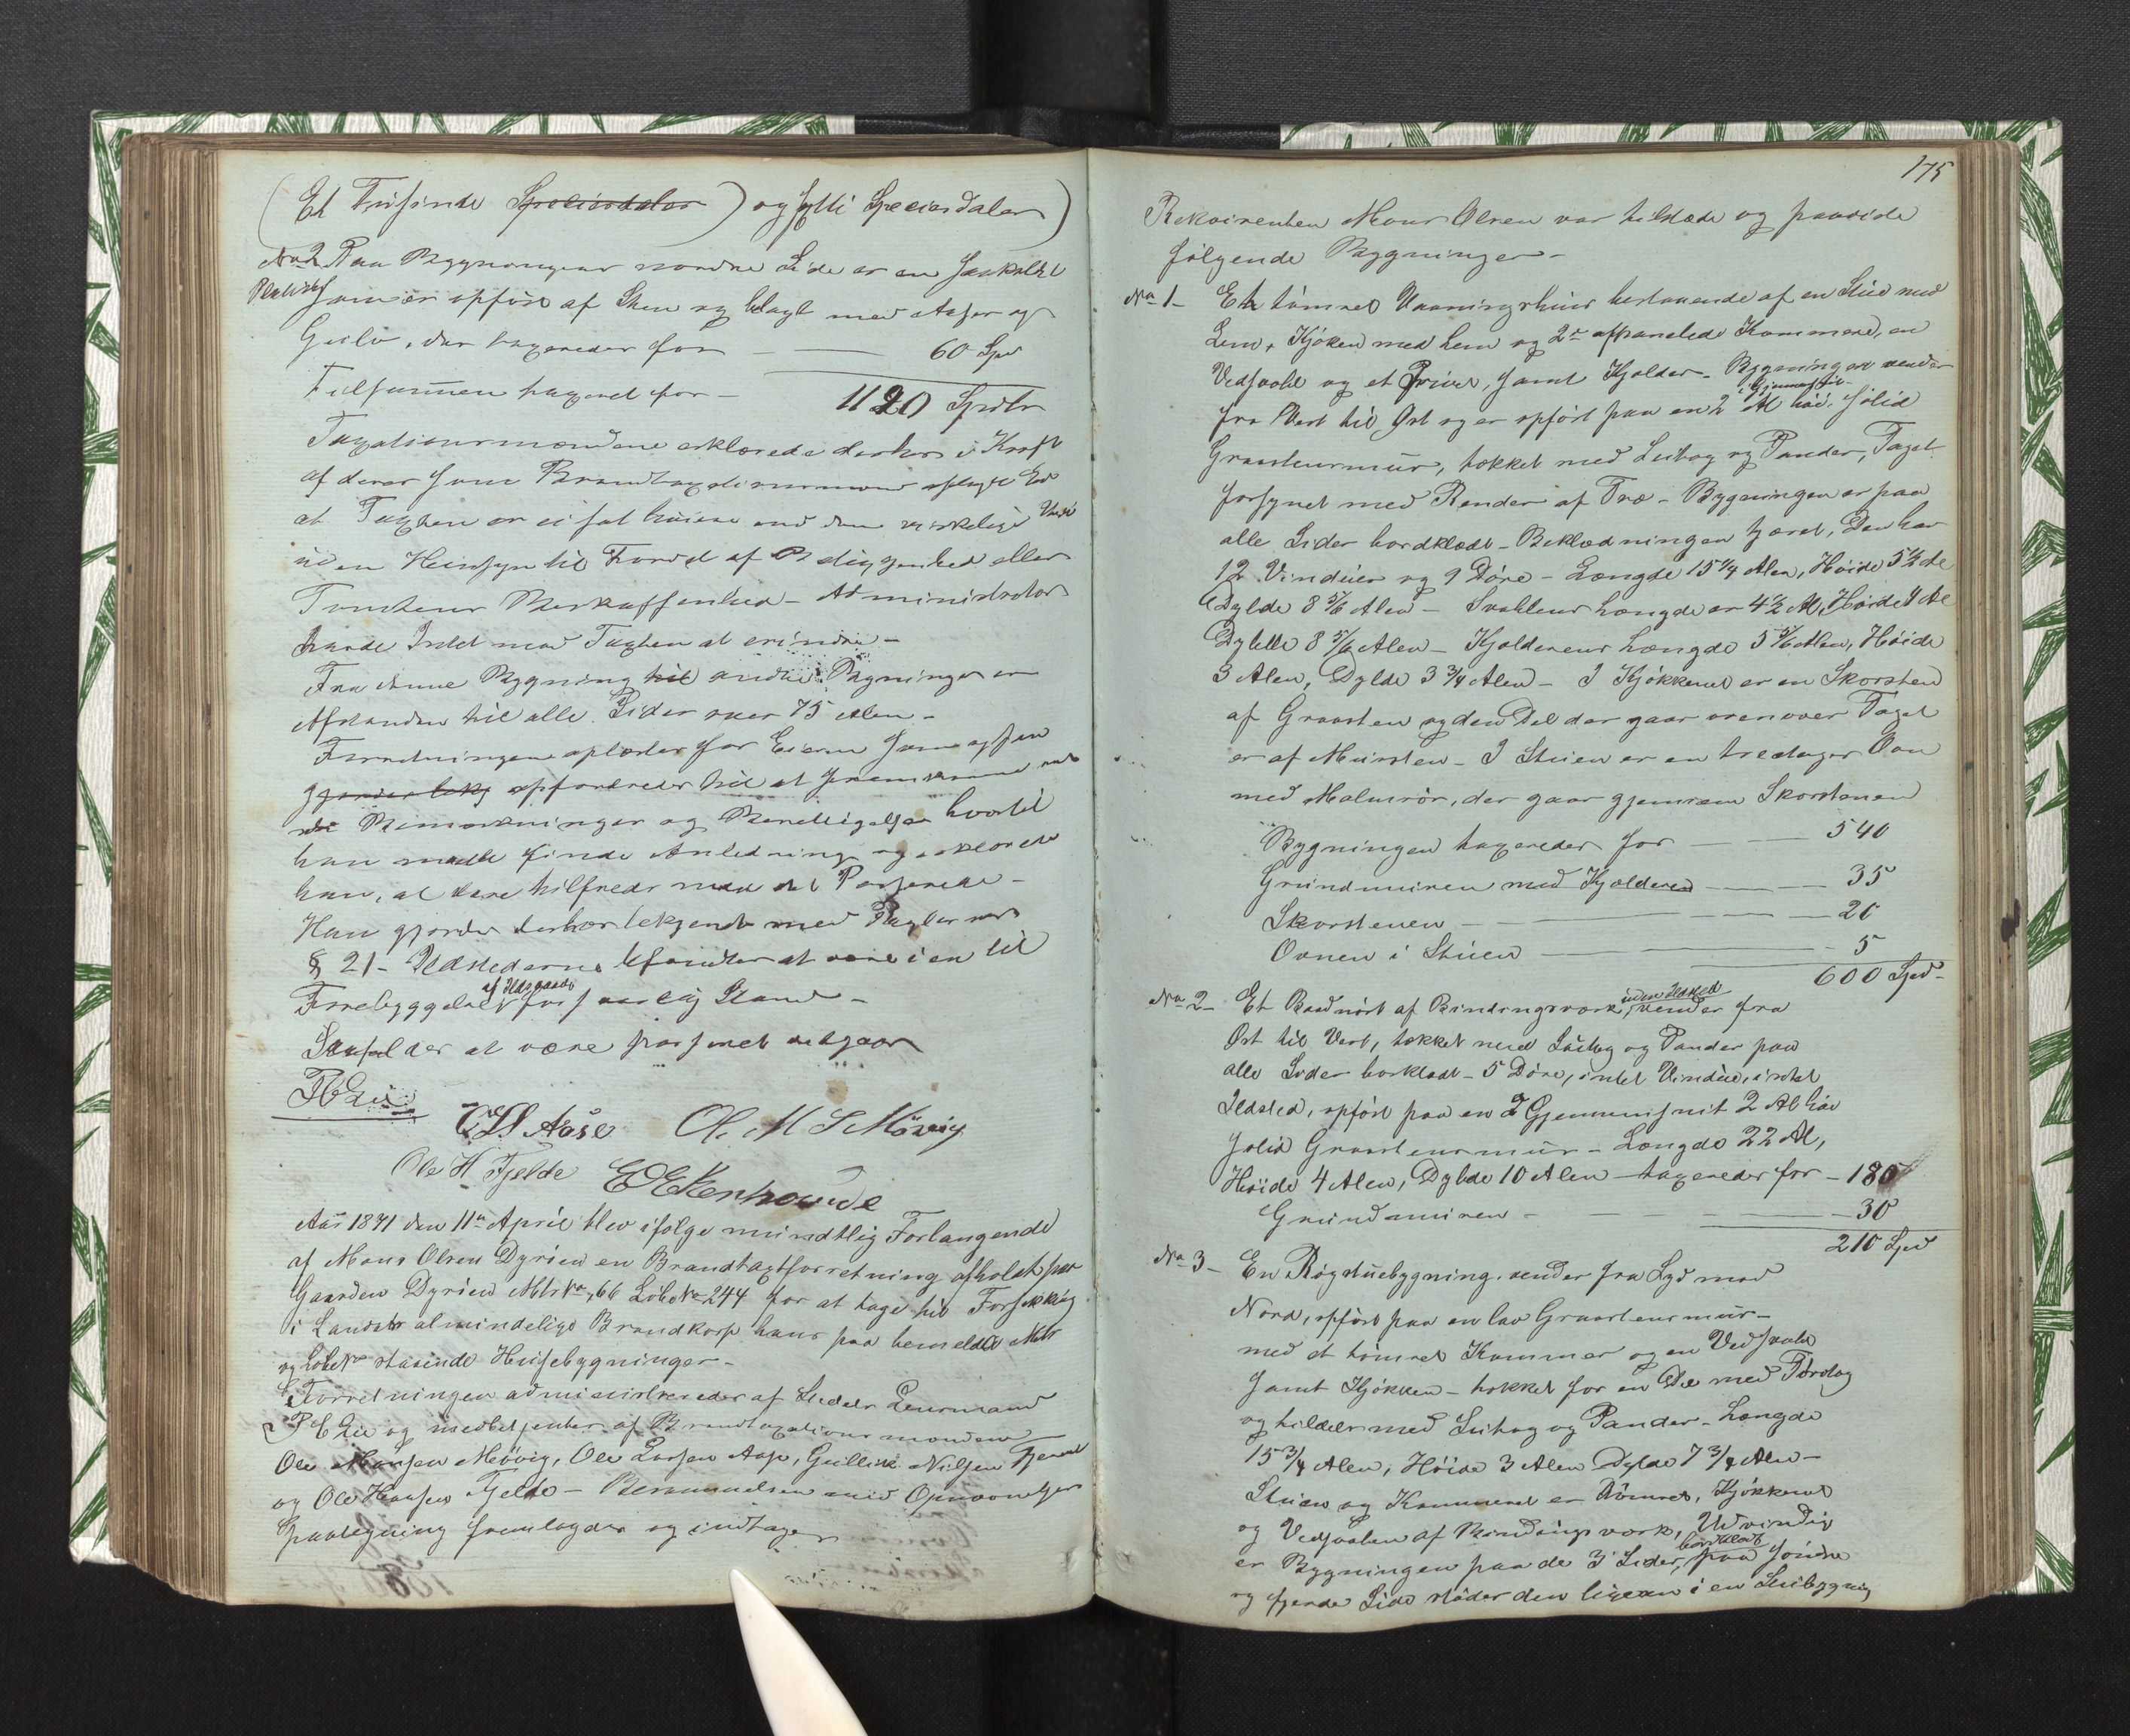 (Et Tusinde Speciesdaler) og sytti Speciesdaler)
No 2 Paa Bygningens nordre Side er en
som er opført af Sten og belagt med og
Gulv, der taxeredes for — 60 Spd
Tilsammen taxeret for — 1120 Spdlr
Taxationsmændene erklærede derhos i Kraft
af deres som Brandtaxationsmænd aflagte Ed
at Taxten er ei sat høiere end den virkelige Værdi
uden Hensyn til Fordel af Beliggenhed eller
Tomtens Beskaffenhed – Administrator
havde Intet mod Taxten at erindre –
Fra denne Bygning til andre Bygninger er
Afstanden til alle Sider over 75 Alen –
Forretningen oplæstes for Eieren som
opfordredes til at fremkomme med
de Bemærkninger og Berettigelser hvortil
han maatte finde Anledning og erklærede
han, at være tilfreds med det Passerede –
Han gjordes derhos bekjendt med
§ 21 – Ildstederne befandtes at være i en til
Forebyggelse af Ildsvaade forsvarlig Stand –
Saaledes at være passeret vedgaar
P E Lie
O L Aase Ol. M S Mövig
Ole H Fjelde
Aar 1871 den 11te April blev ifølge mundtlig Forlangende
af Mons Olsen Dyrøen en Brandtaxtforretning afholdt paa
Gaarden Dyrøen Mtr No 66 Löbe No 244 for at tage til Forsikking
i Landets almindelige Brandkasse hans paa bemeldte Mtr
og Löbe No staaende Husebygninger –
Forretningen administreredes af Stedets Lensmand
P E Lie og medbetjentes af Brandtaxationsmændene
Ole Monsen Mövig, Ole Larsen Aase, Gullik Nilsen
og Ole Hansen Fjelde – Berammelsen med
paategning fremlagdes og indtages
175
Rekvirenten Mons Olsen var tilstæde og paaviste
følgende Bygninger –
No 1 – Et tömret Vaaningshuus bestaaende af en Stue med
Lem, Kjøken med Lem og 2de afpanelede Kammere, en
Vedsvale og et Privet, samt Kjelder – Bygningen vender
fra Vest til Øst og er opført paa en 2 Al i Gjennemsnit høi, solid
Graastensmuur, tækket med Sutag og Pander, Taget
forsynet med Render af Træ – Bygningen er paa
alle Sider bordklædt – Beklædningen tjæret, Den har
12 Vinduer og 9 Döre – Længde 15 1/4 Alen, Høide 5 1/2 Al
Dybde 8 5/6 Alen – Svalens Længde er 4 1/2 Al, Høide 4 Al
Dybde 8 5/6 Alen – Kjelderens Længde 5 5/6 Alen, Høide
3 Alen, Dybde 3 3/4 Alen – I Kjøkkenet er en Skorsten
af Graasten og den Del der gaar ovenover Taget
er af Mursten – I Stuen er en treetages Ovn
med Malmrör, der gaar gjennem Skorstenen
Bygningen taxeredes for — 540
Grundmuren med Kjelderen — 35
Skorstenen — 20
Ovnen i Stuen — 5
600 Spd –
No 2 – Et Baadnöst af Bindingsværk, uden Ildsted vender fra
Øst til Vest, tækket med Sutag og Pander paa
alle Sider bordklædt – 5 Döre, intet Vindue, intet
Ildsted, opført paa en i Gjennemsnit 2 Al høi
solid Graastensmuur – Længde 22 Al,
Høide 4 Alen, Dybde 10 Alen – taxeredes for – 180
Grundmuren — 30
210 Spd
No 3 – En Røgstuebygning, vender fra Syd mod
Nord, opført paa en lav Graastensmuur –
med et tömret Kammer og en Vedsvale
samt Kjøkken – tækket for en Del med Törvtag
og tildels med Sutag og Pander – Længde
15 3/4 Alen, Høide 3 Alen Dybde 7 3/4 Alen –
Stuen og Kammeret er tömret, Kjøkkenet
og Vedsvalen af Bindingsværk, Udvendig
er Bygningen paa de 3 Sider bordklædt, paa söndre
og fjerde Side stöder den ligean i en